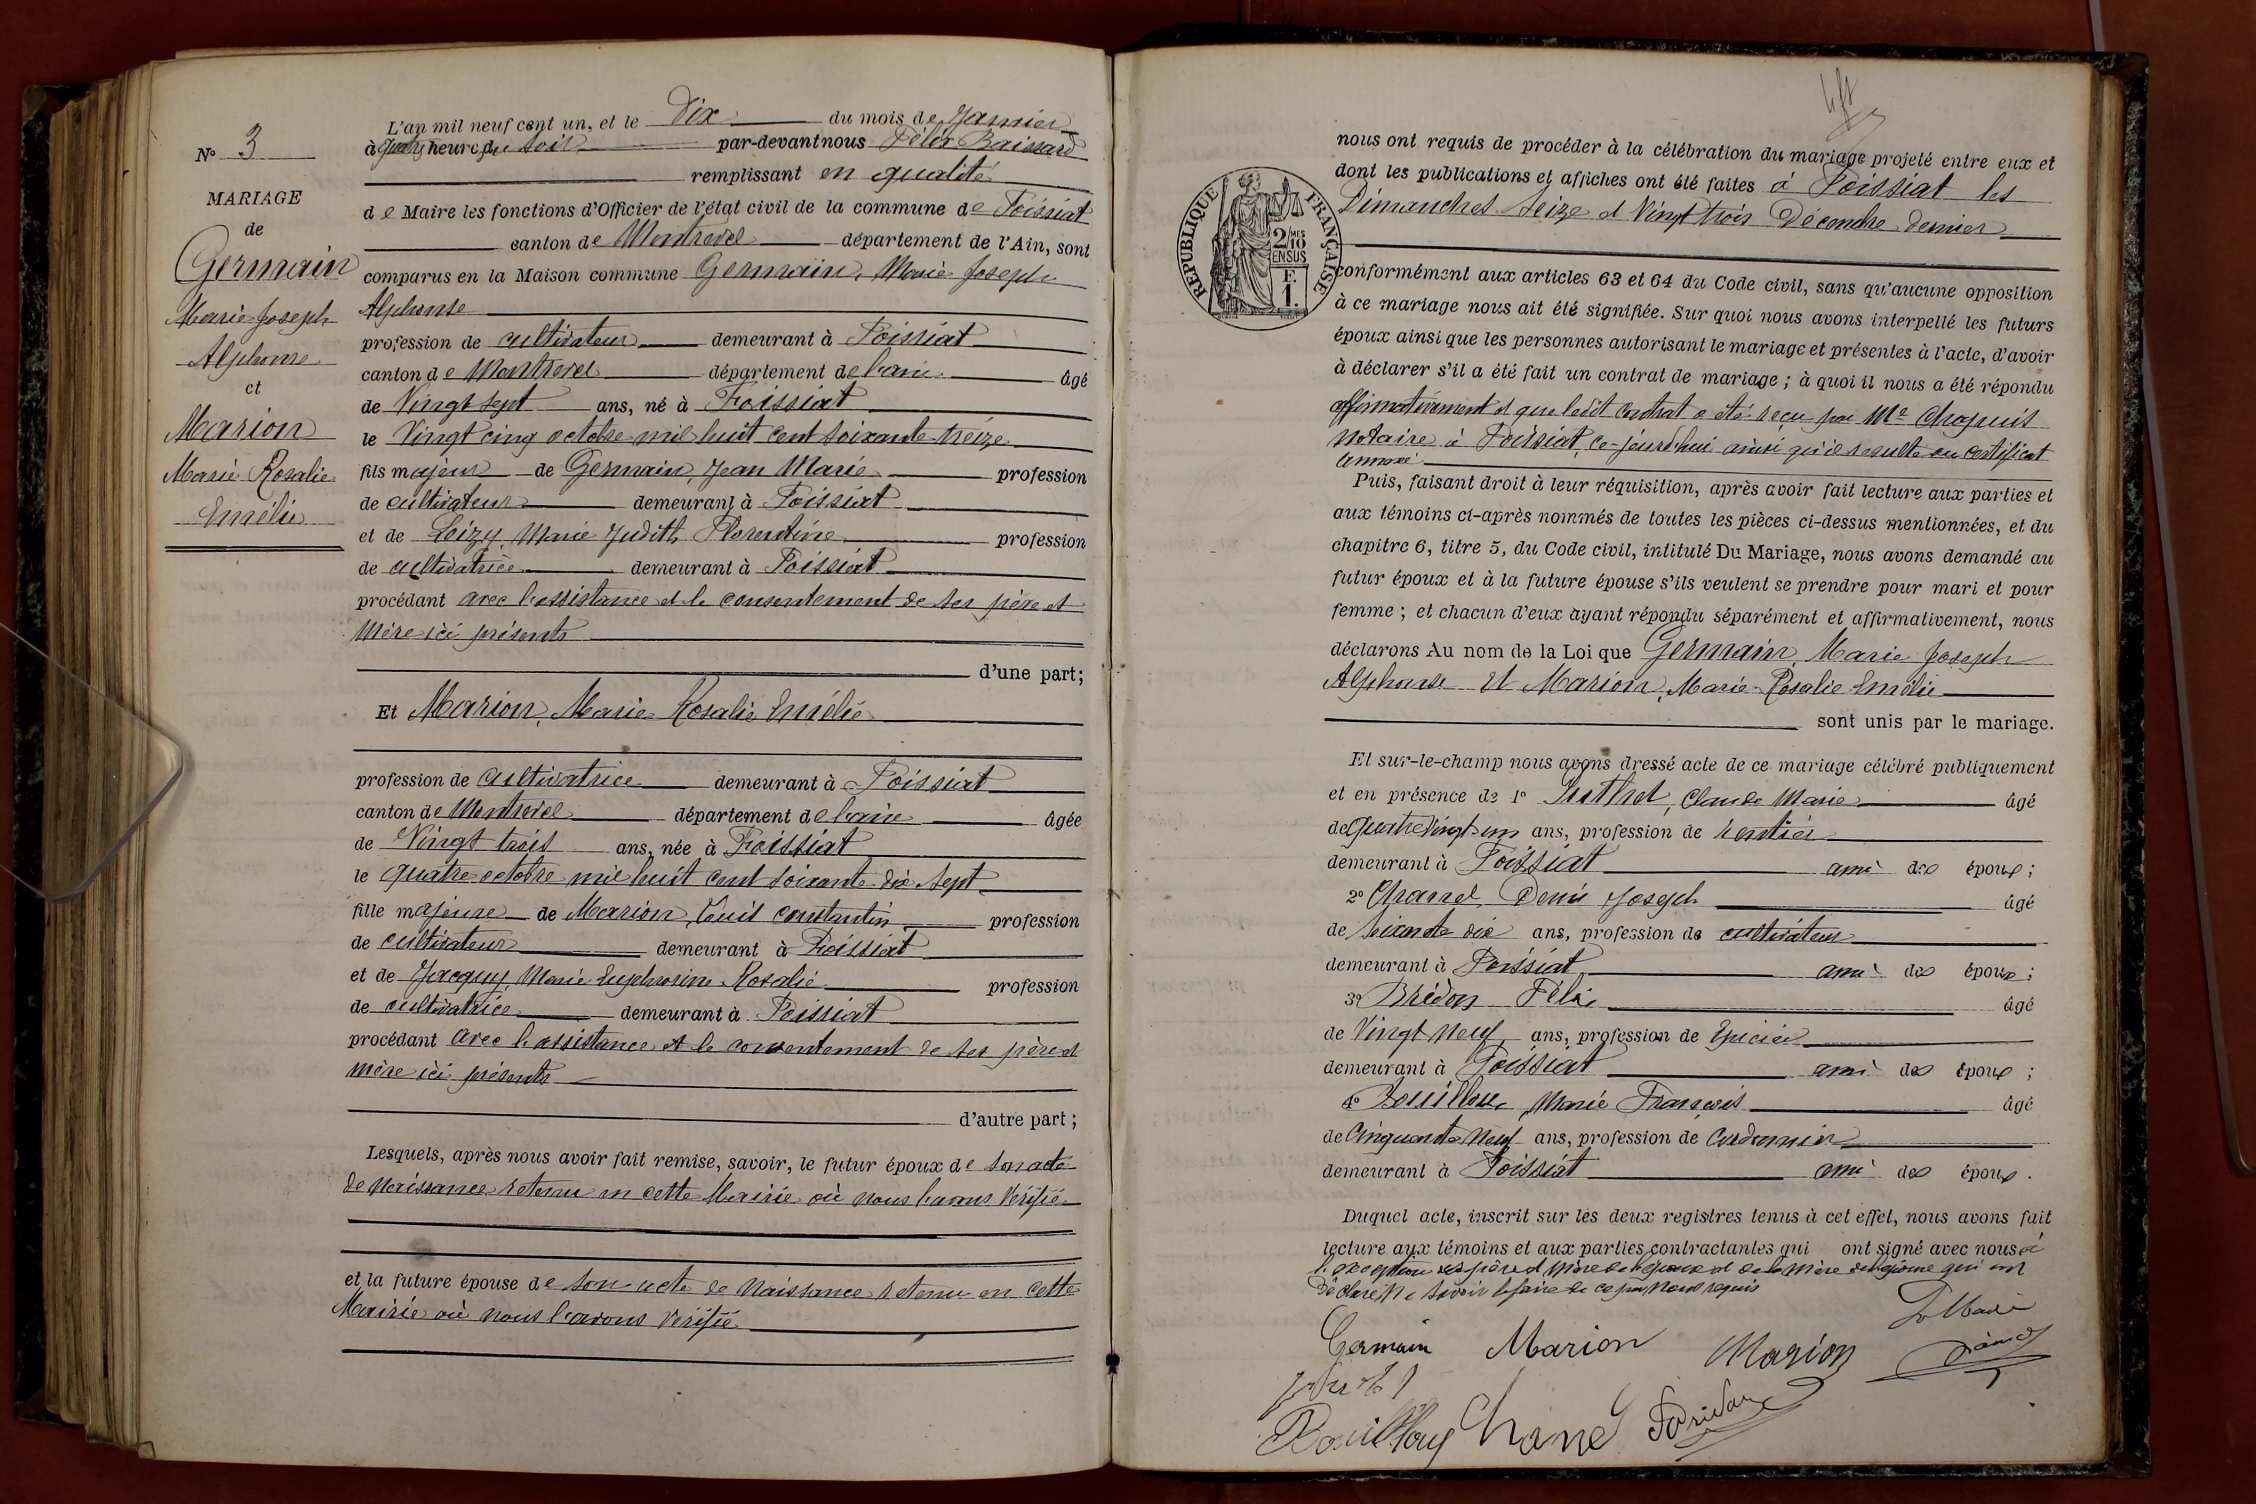 L'an mil neuf cent un, et le Dix du mois de Janvier
N° 3
à quatre heures du soir par-devant nous Félix Baissard
remplissant en qualité
MARIAGE
de Maire les fonctions d'Officier de l'état civil de la commune de Foissiat
de
canton de Montrevel département de l'Ain, sont
Germain
comparus en la Maison commune Germain, Marie Joseph
Marie Joseph
Alphonse
profession de cultivateur demeurant à Foissiat
Alphonse
canton de Montrevel département de l'ain âgé
et
de Vingt sept ans, né à Foissiat
Marion
le Vingt cinq octobre mil huit cent soixante treize
Marie Rosalie
fils majeur de Germain, Jean Marie profession
de cultivateur demeurant à Foissiat
Emélie
et de Loizy, Marie Judith Florentine profession
de cultivatrice demeurant à Foissiat
procédant avec l'assistance et le consentement de ses père et
mère ici présents
d'une part;
Et Marion, Marie Rosalie Emélie
profession de cultivatrice demeurant à Foissiat
canton de Montrevel département de l'ain âgée
de Vingt trois ans, née à Foissiat
le quatre octobre mil huit cent soixante dix sept
fille majeure de Marion, Louis constantin profession
de cultivateur demeurant à Foissiat
et de Jacquy, Marie Euphrosine Rosalie profession
de cultivatrice demeurant à Foissiat
procédant avec l'assistance et le consentement de ses père et
mère ici présents
d'autre part;
Lesquels, après nous avoir fait remise, savoir, le futur époux de son acte
de naissance retenu en cette Mairie où nous l'avons vérifié
et la future épouse de son acte de naissance retenu en cette
Mairie où nous l'avons vérifié
nous ont requis de procéder à la célébration du mariage projeté entre eux et
dont les publications et affiches ont été faites à Foissiat les
Dimanches seize et Vingt trois Décembre dernier
RÉPUBLIQUE FRANÇAISE
2/10 MES
EN SUS
F.
1.
conformément aux articles 63 et 64 du Code civil, sans qu'aucune opposition
à ce mariage nous ait été signifiée. Sur quoi nous avons interpellé les futurs
époux ainsi que les personnes autorisant le mariage et présentes à l'acte, d'avoir
à déclarer s'il a été fait un contrat de mariage; à quoi il nous a été répondu
affirmativement et que ledit contrat a été reçu par Me Chapuis
Notaire à Foissiat, ce-jourd'hui ainsi qu'il résulte du certificat
annexé
Puis, faisant droit à leur réquisition, après avoir fait lecture aux parties et
aux témoins ci-après nommés de toutes les pièces ci-dessus mentionnées, et du
chapitre 6, titre 5, du Code civil, intitulé Du Mariage, nous avons demandé au
futur époux et à la future épouse s'ils veulent se prendre pour mari et pour
femme; et chacun d'eux ayant répondu séparément et affirmativement, nous
déclarons Au nom de la Loi que Germain, Marie Joseph
Alphonse et Marion, Marie Rosalie Emélie
sont unis par le mariage.
Et sur-le-champ nous avons dressé acte de ce mariage célébré publiquement
et en présence de 1° Claude Marie âgé
de quatre vingt-un ans, profession de rentier
demeurant à Foissiat ami des époux;
2° Charnel Denis Joseph âgé
de soixante dix ans, profession de cultivateur
demeurant à Foissiat ami des époux;
3° Brédon Félix âgé
de Vingt neuf ans, profession de Epicier
demeurant à Foissiat ami des époux;
4° Bouilloux, Marie François âgé
de Cinquante neuf ans, profession de Cordonnier
demeurant à Foissiat ami des époux.
Duquel acte, inscrit sur les deux registres tenus à cet effet, nous avons fait
lecture aux témoins et aux parties contractantes qui ont signé avec nous à
l'exception des père et mère de l'époux et de la mère de l'épouse qui ont
déclaré ne savoir le faire de ce par nous requis
Germain Marion Marion
Le Maire
Bouilloux